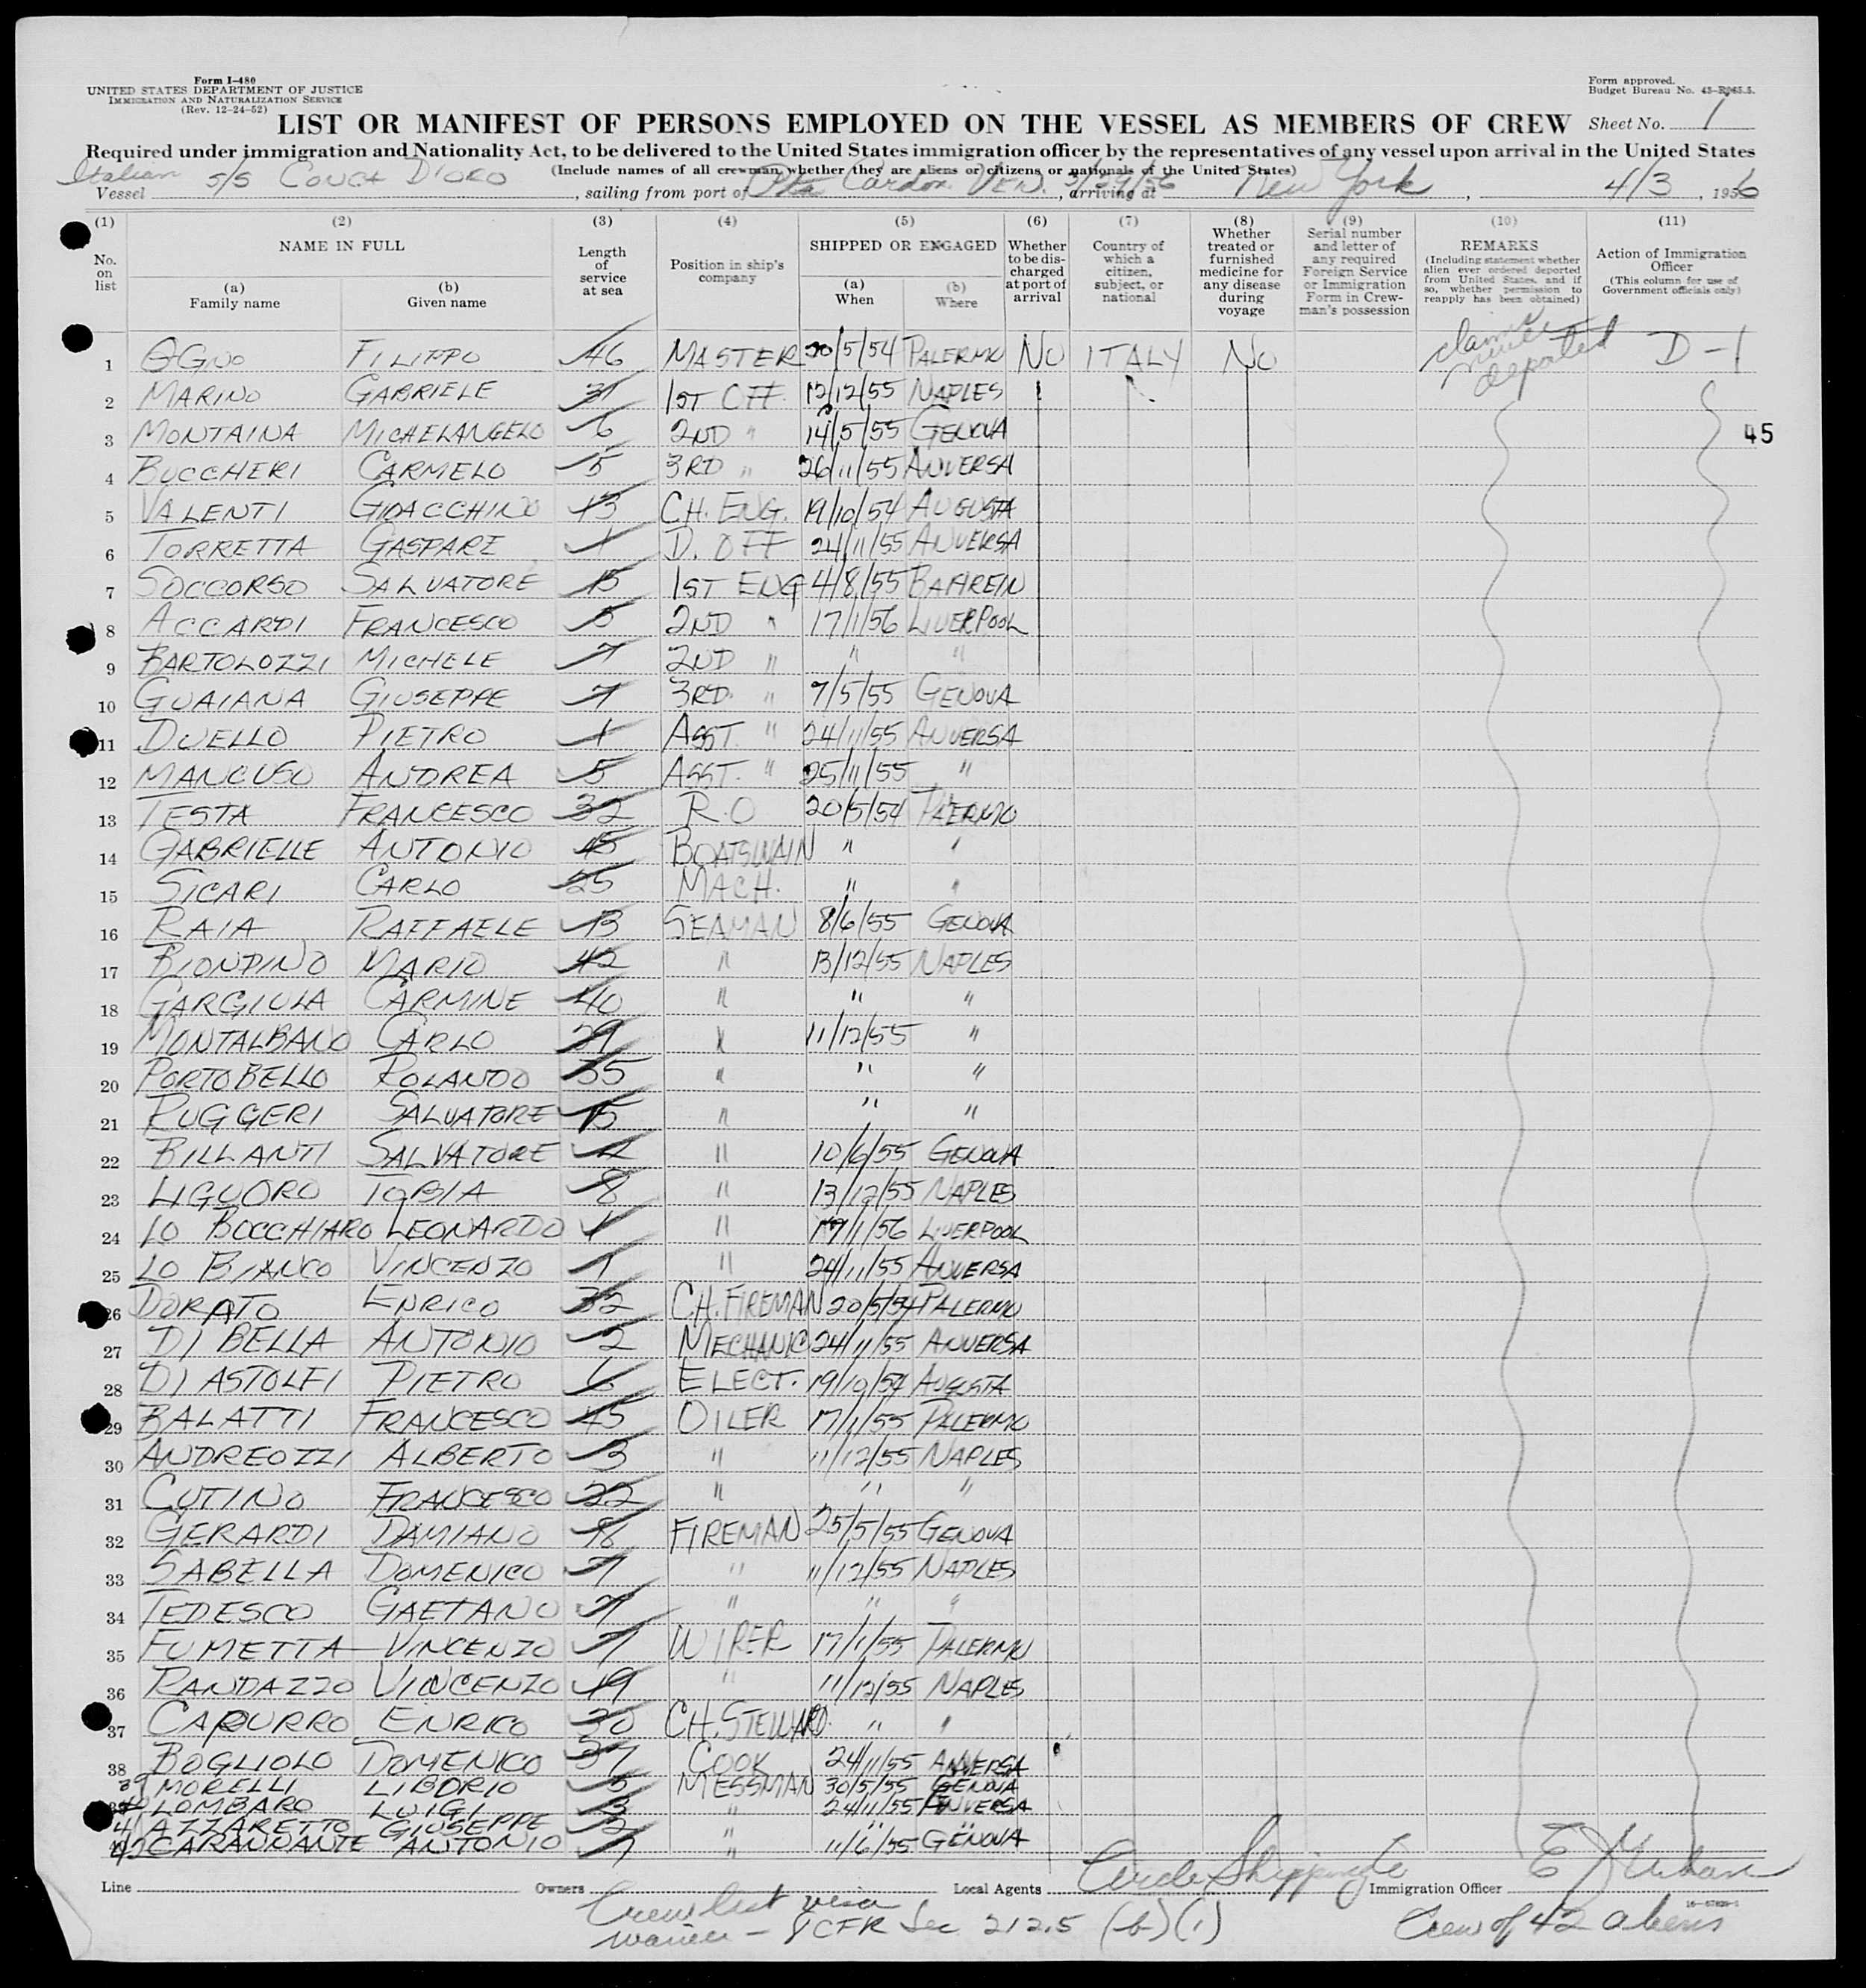 Form I-480
UNITED STATES DEPARTMENT OF JUSTICE
IMMIGRATION AND NATURALIZATION SERVICE
(Rev. 12-24-52)
Form approved.
Budget Bureau No. 43-R065.5.
LIST OR MANIFEST OF PERSONS EMPLOYED ON THE VESSEL AS MEMBERS OF CREW Sheet No. 1
Required under immigration and Nationality Act, to be delivered to the United States immigration officer by the representatives of any vessel upon arrival in the United States
(Include names of all crewman, whether they are aliens or citizens or nationals of the United States)
Italian
Vessel S/S CONCA D'ORO, sailing from port of Pta Cardon VEN. 3/29/56, arriving at New York, 4/3, 1956
(1) (2) (3) (4) (5) (6) (7) (8) (9) (10) (11)
No. on list
NAME IN FULL
(a) Family name
(b) Given name
Length of service at sea
Position in ship's company
SHIPPED OR ENGAGED
(a) When
(b) Where
Whether to be discharged at port of arrival
Country of which a citizen, subject, or national
Whether treated or furnished medicine for any disease during voyage
Serial number and letter of any required Foreign Service or Immigration Form in Crewman's possession
REMARKS
(Including statement whether alien ever ordered deported from United States, and if so, whether permission to reapply has been obtained)
Action of Immigration Officer
(This column for use of Government officials only)
1 OGNO FILIPPO 46 MASTER 20/5/54 PALERMO NO ITALY NO claims never deported D-1
2 MARINO GABRIELE 31 1ST OFF. 12/12/55 NAPLES
3 MONTAINA MICHELANGELO 6 2ND " 14/5/55 GENOVA 45
4 BUCCHERI CARMELO 5 3RD " 26/11/55 ANVERSA
5 VALENTI GIOACCHINO 13 CH. ENG. 19/10/54 AUGUSTA
6 TORRETTA GASPARE 1 D. OFF 24/11/55 ANVERSA
7 SOCCORSO SALVATORE 15 1ST ENG 4/8/55 BAHREIN
8 ACCARDI FRANCESCO 5 2ND " 17/1/56 LIVERPOOL
9 BARTOLOZZI MICHELE 7 2ND " " "
10 GUAIANA GIUSEPPE 7 3RD. " 7/5/55 GENOVA
11 DUELLO PIETRO 1 ASST. " 24/11/55 ANVERSA
12 MANCUSO ANDREA 5 ASST. " 25/11/55 "
13 TESTA FRANCESCO 32 R.O 20/5/54 PALERMO
14 GABRIELLE ANTONIO 45 BOATSWAIN " "
15 SICARI CARLO 25 MACH. " "
16 RAIA RAFFAELE 13 SEAMAN 8/6/55 GENOVA
17 BIONDINO MARIO 42 " 13/12/55 NAPLES
18 GARGIULA CARMINE 40 " " "
19 MONTALBANO CARLO 29 " 11/12/55 "
20 PORTOBELLO ROLANDO 35 " " "
21 RUGGERI SALVATORE 15 " " "
22 BILLANTI SALVATORE " 10/6/55 GENOVA
23 LIGUORO TOBIA 8 " 13/12/55 NAPLES
24 LO BOCCHIARO LEONARDO 1 " 17/1/56 LIVERPOOL
25 LO BIANCO VINCENZO 1 " 24/11/55 ANVERSA
26 DORATO ENRICO 32 CH. FIREMAN 20/5/54 PALERMO
27 DI BELLA ANTONIO 2 MECHANIC 24/11/55 ANVERSA
28 DI ASTOLFI PIETRO 6 ELECT. 19/10/54 AUGUSTA
29 BALATTI FRANCESCO 45 OILER 17/1/55 PALERMO
30 ANDREOZZI ALBERTO 3 " 11/12/55 NAPLES
31 CUTINO FRANCESCO 22 " " "
32 GERARDI DAMIANO 18 FIREMAN 25/5/55 GENOVA
33 SABELLA DOMENICO 7 " 11/12/55 NAPLES
34 TEDESCO GAETANO 7 " " "
35 FUMETTA VINCENZO 7 WIPER 17/1/55 PALERMO
36 RANDAZZO VINCENZO 19 " 11/12/55 NAPLES
37 CAPURRO ENRICO 30 CH. STEWARD. " "
38 BOGLIOLO DOMENICO 37 COOK 24/11/55 ANVERSA
39 MORELLI LIBORIO 5 MESSMAN 30/5/55 GENOVA
40 LOMBARO LUIGI 3 " 24/11/55 ANVERSA
41 AZZARETTO GIUSEPPE 2 " " "
42 CARANNANTE ANTONIO 7 " 11/6/55 GENOVA
Line Owners Local Agents Shipping Co Immigration Officer
Crew list visa
waiver - 8 CFR Sec 212.5 (b)(1)
Crew of 42 aliens